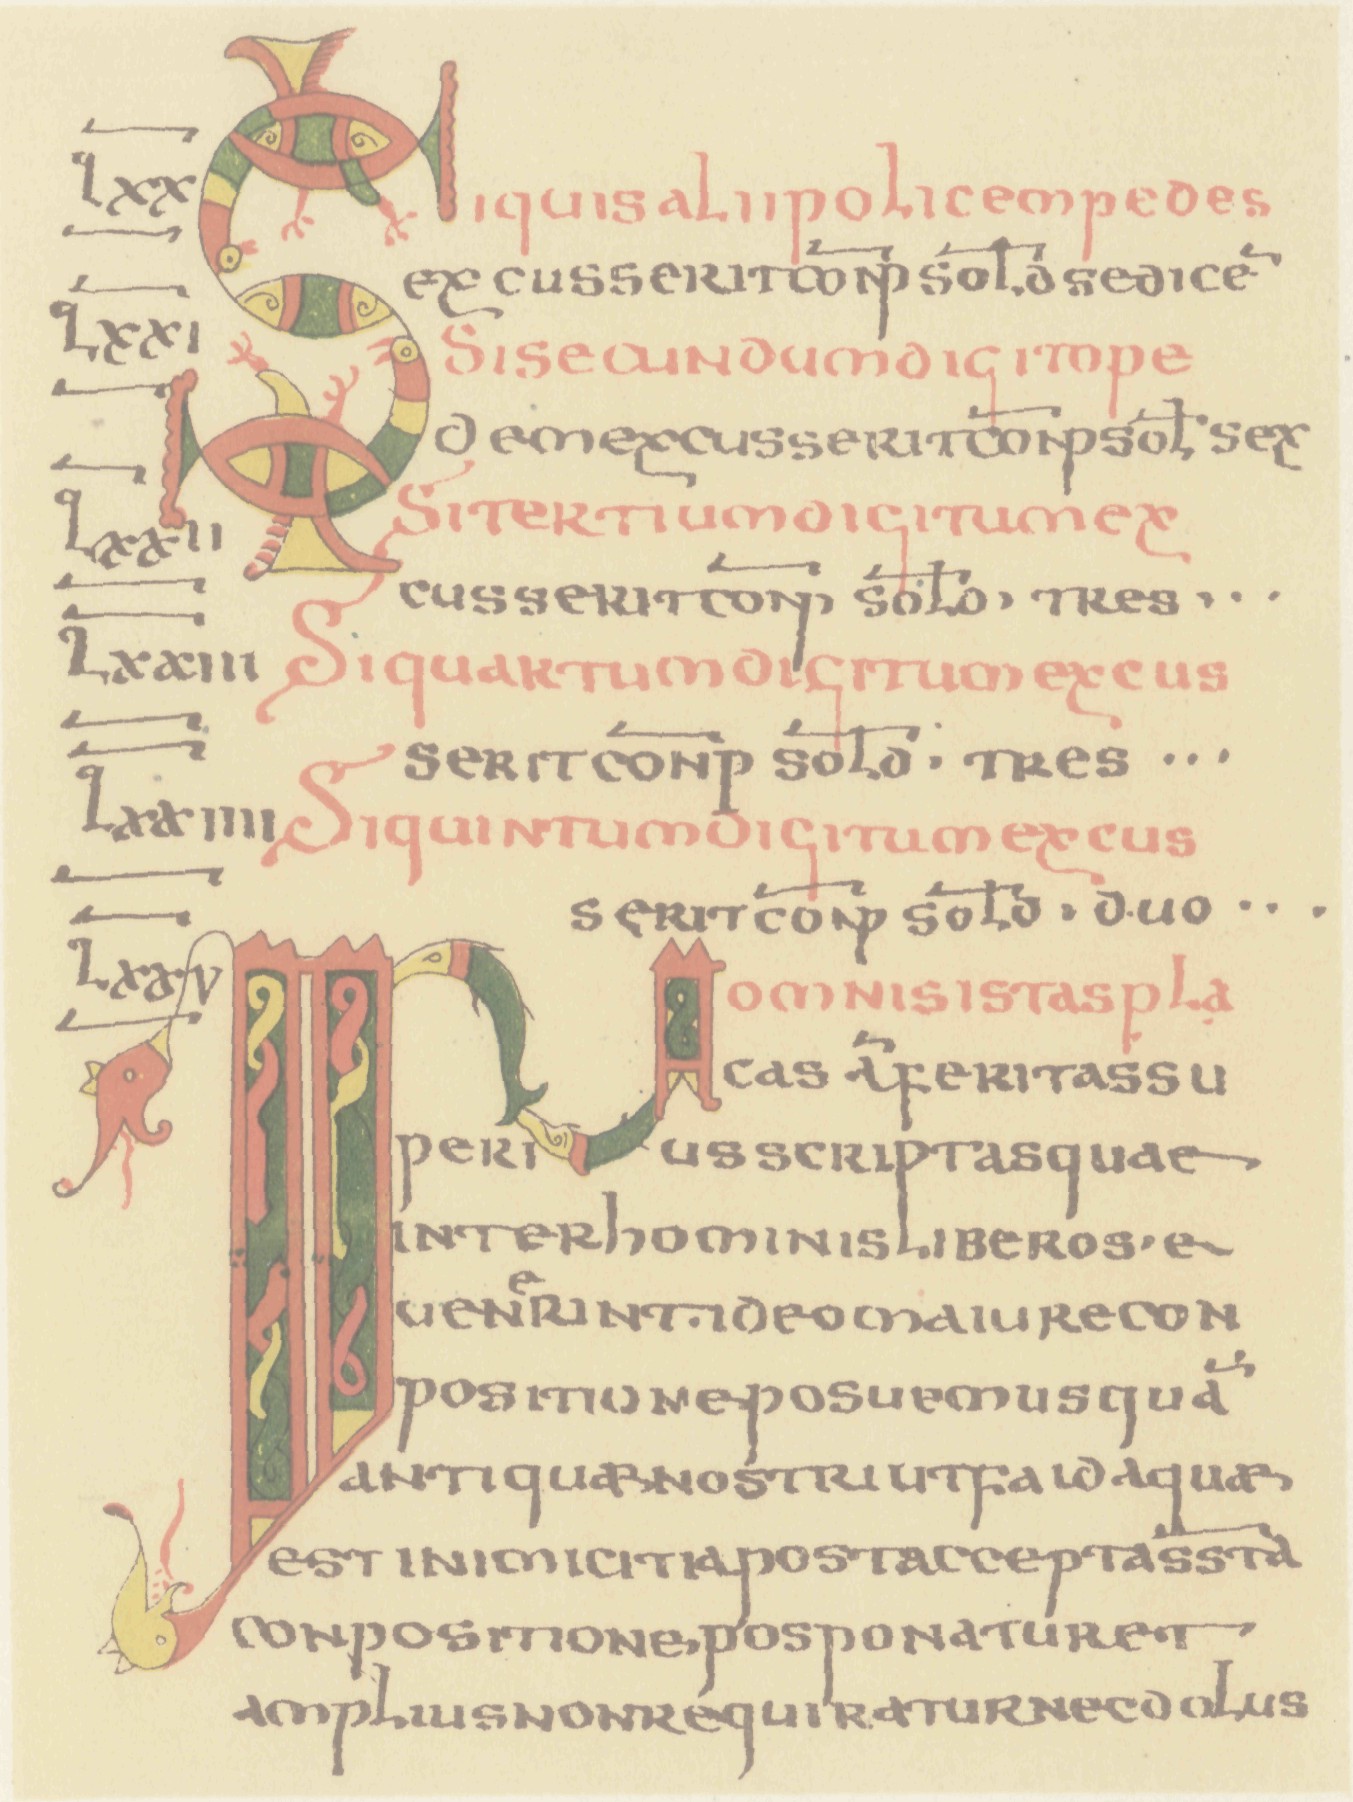 LXX Siquis alii policem pedes
excusserit conp̄ sol̄d sedice̅
LXXI Si secundum digitm pe
dem excusserit con̄p sol̄ sex
LXXII Si tertium digitum ex
cusserit con̄p sol̄d, tres, . .
LXXIII Si quartum digitum excus
serit con̄p sol̄d · tres . . .
LXXIIII Si quintum digitum excus
serit con̄p sol̄d · duo . . .
LXXV In omnis istas pla
cas a̅ feritas su
perius scriptas quae
inter hominis liberos · e
uenerint · ideo maiure con
positione posuemus qua̅
antiquæ nostri ut faida quæ
est inimicitia post acceptas s̅ta̅
conpositione, posponatur et
amplius non requiratur nec dolus